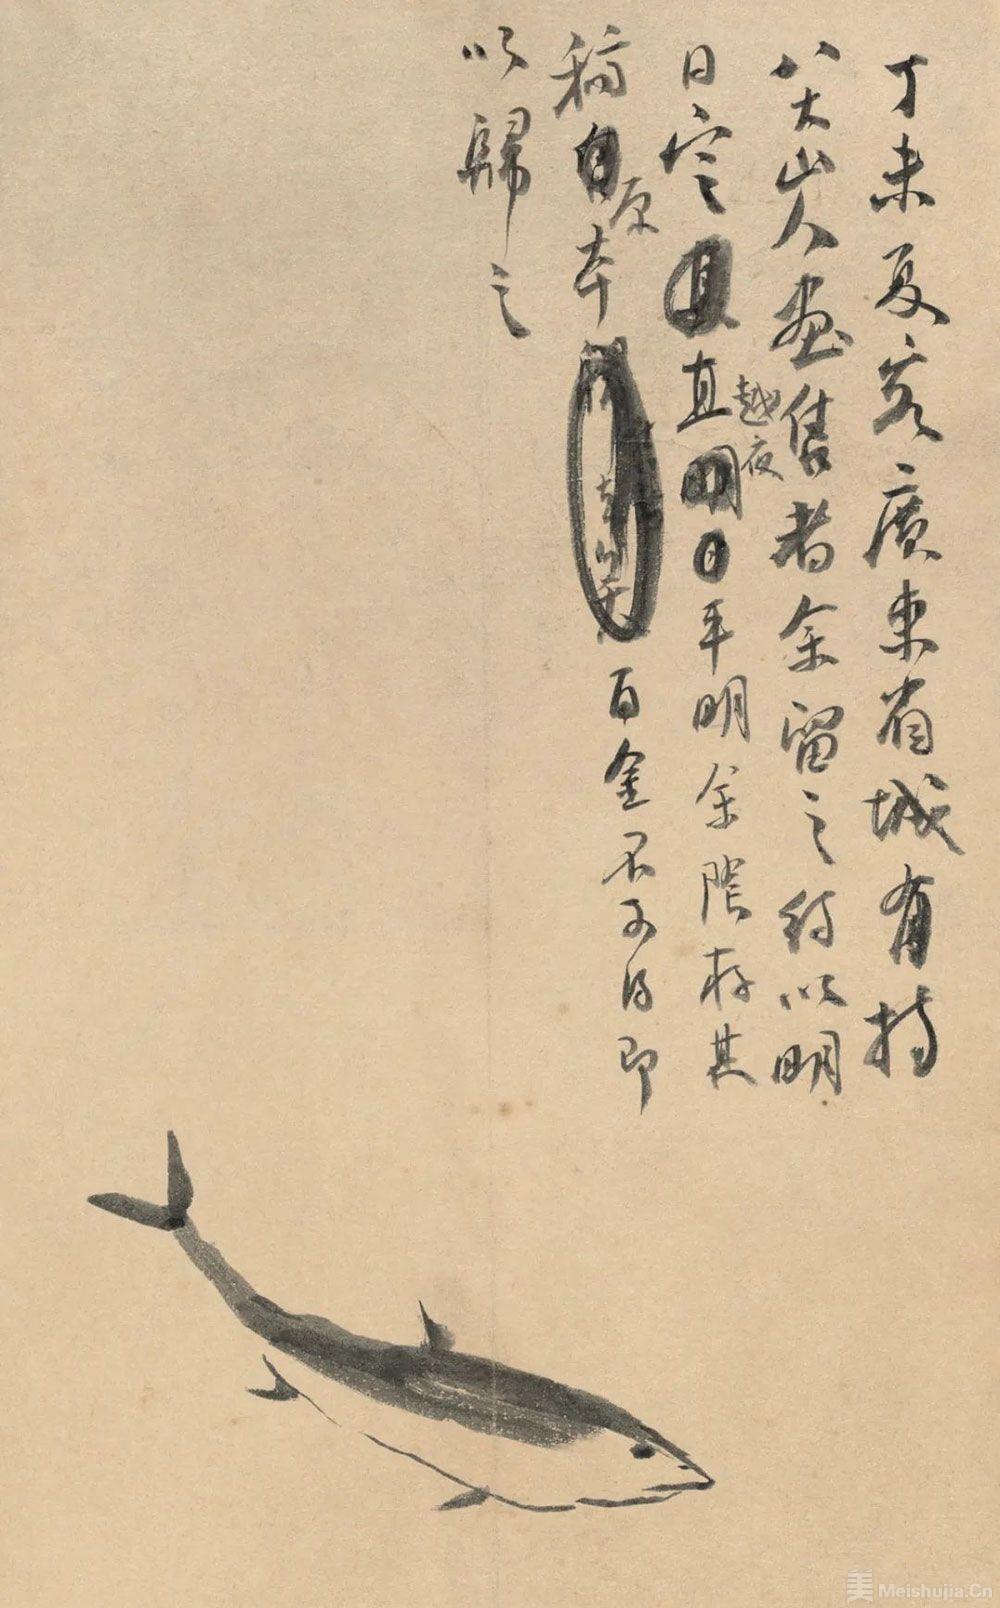 丁未夏客廣東省城有持
八大山人画售者余留之待以明
日定直越夜平明余隂存其
稿原本百金不可得即
以歸之
美 Meishujia.Cn